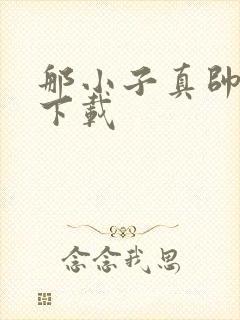 那小子真帥
下載
念念我思